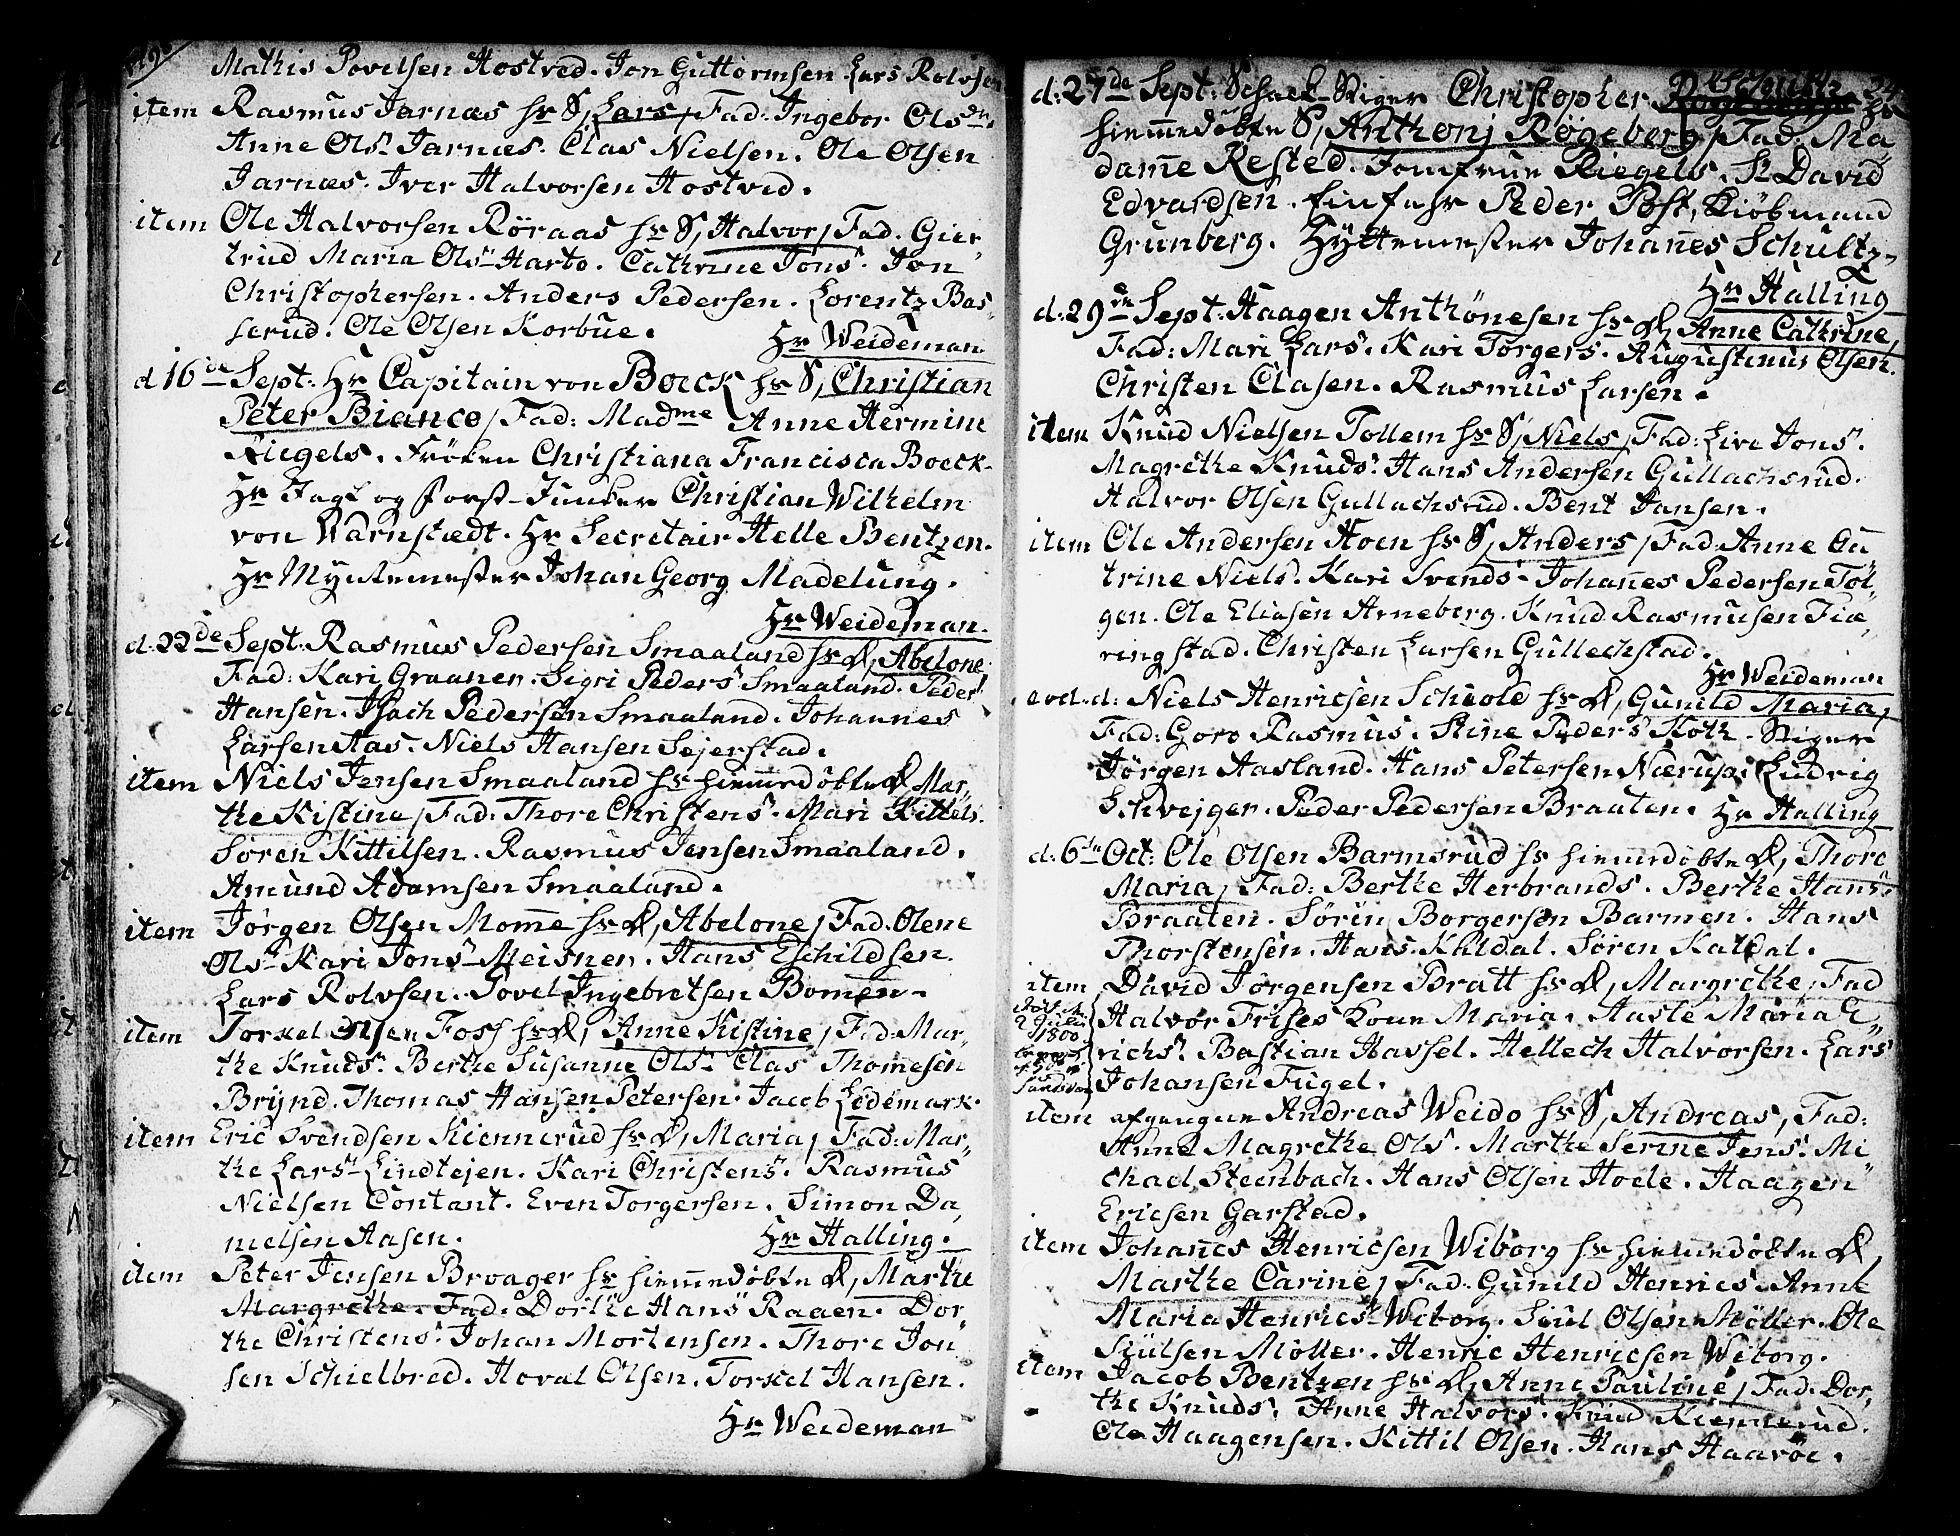 Mathis Povelsen Hostved. Jon Guttormsen Lars Rolvsen
item Rasmus Jarnæs hs S, Lars, Fad: Ingebor Olsdr.
Anne Ols. Jarnæs. Clas Nielsen. Ole Olsen
Jarnæs. Iver Halvorsen Hostved.
item Ole Halvorsen Röraas hs S, Halvor, Fad. Gier
trud Maria Ols. Harto. Cathrine Jons. Jon
Christophersen. Anders Pedersen. Lorentz Bas
serud. Ole Olsen Korbüe.
Hr Weideman
d 16de Sept: Hr Capitain von Boeck hs S, Christian
Peter Bianco, Fad: Madme Anne Hermine
Riegels. Fröken Christiana Francisca Boeck.
Hr Jagt og forst-Junker Christian Wilhelm
von Warnstædt. Hr Secretair Helle Bentzen.
Hr Myntemester Johan Georg Madelung.
Hr Weideman.
d. 22de Sept. Rasmus Pedersen Smaaland hs D, Abelone
Fad: Kari Graaner. Sigri Peders Smaaland. Peder
Hansen. Isach Pedersen Smaaland. Johannes
Larsen Aas. Niels Hansen Sejerstad.
item Niels Jensen Smaaland hs hiemmedöbte D, Mar
the Kistine, Fad: Thore Christens. Mari Kittels.
Sören Kittilsen. Rasmus Jensen Smaaland.
Amund Adamsen Smaaland.
item Jörgen Olsen Momme hs D, Abelone, Fad: Olene
Ols. Kari Jons. Meisner. Hans Eschildsen.
Lars Rolvsen. Povel Ingebretsen Bomen.
item Torkel Olsen Foss hs D, Anne Kistine, Fad: Mar
the Knuds. Berthe Susanne Ols. Clas Thomesen
Brynd. Thomas Hansen Petersen. Jacob Ledemark.
item Eric Svendsen Kiennerud hs D, Maria, Fad: Mar
the Lars. Lindtejen. Kari Christens. Rasmus
Nielsen Contant. Even Torgersen. Simon Da
nielsen Aasen.
Hr Halling.
item Peter Jensen Broager hs hiemmedöbte D, Marthe
Margrethe. Fad. Dorthe Hans Raaen. Dor
the Christens. Johan Mortensen. Thore Jon
sen Schielbred. Hoval Olsen. Torkel Hansen.
Hr Weideman
d: 27de Sept: Schact-Stiger Christopher
hiemmedöbte S, Anthonj Rögeberg, Fad: Ma
damme Rested. Jomfrue Riegels. Sr David
Edvardsen. Einfahr Peder Post, Kiöbmand
Grunberg. Hyttemester Johannes Schultz.
Hr Halling
d: 29de Sept: Haagen Anthönesen hs D, Anne Cathrine,
Fad: Mari Lars. Kari Torgers. Augustinus Olsen.
Christen Clasen. Rasmus Larsen.
item Knud Nielsen Tollem hs S, Niels, Fad: Live Jons.
Magrethe Knuds. Hans Andersen Gullachsrud.
Halvor Olsen Gullachsrud. Bent Jansen.
item Ole Andersen Hoen hs S, Anders, Fad: Anne Ca
trine Niels. Kari Svends. Johannes Pedersen Tol
gen. Ole Eliasen Arneberg. Knud Rasmusen Fiæ
ringstad. Christen Larsen Gullechstad.
Hr Weideman
eod. d: Niels Henricsen Schiold hs D, Gunild Maria,
Fad: Goro Rasmus. Stine Peders Koth. Stiger
Jörgen Aasland. Hans Petersen Nærup. Ludvig
Schvejger. Peder Pedersen Braaten. Hr Halling
d: 6te Oct: Ole Olsen Barmsrud hs hiemmedöbte D, Thore
Maria, Fad: Berthe Herbrands. Berthe Hans
Braaten. Sören Borgersen Barmen. Hans
Thorstensen. Hans Kaldal. Sören Kaldal.
item David Jörgensen Bratt hs D, Margrethe, Fad
Halvor Frises Kone Maria. Aaste Maria E
richs. Bastian Hassel. Hellech Halvorsen. Lars
Johansen Fugel.
1800
item afgangne Andreas Weido hs S, Andreas, Fad:
Anne Magrethe Ols. Marthe Serine Jens. Mi
chael Steenbach. Hans Olsen Hoele. Haagen
Ericsen Garstad.
item Johannes Henricsen Wiborg hs hiemmedöbte D,
Marthe Carine, Fad: Gunild Henrics. Anne
Maria Henrics. Wiborg. Siul Olsen Möller. Ole
Siulsen Möller. Henric Henricsen Wiborg.
item Jacob Bentzen hs D, Anne Pauline, Fad: Dor
the Knuds. Anne Halvors. Knud Kiennerud.
Ole Haagensen. Kittil Olsen. Hans Haavöe.